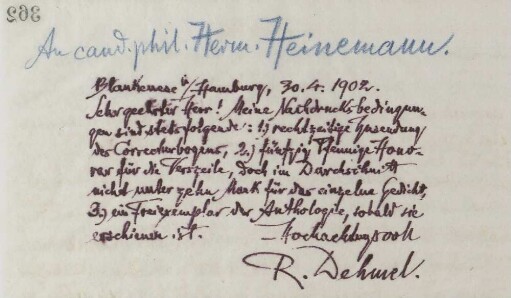 392
An cand. phil. Herm. Heinemann.
Blankenese b/Hamburg, 30.4.1902.
Sehr geehrter Herr! Meine Nachdrucksbedingun-
gen sind stets folgende: 1.) rechtzeitige Zusendung
des Correcturbogens, 2.) fünfzig Pfennige Hono-
rar für die Verszeile, doch im Darchschnitt
nicht unter zehn Mark für das einzelne Gedicht,
3.) ein Freiexemplar der Anthologie, sobald sie
erschienen ist. Hochachtungsvoll
R. Dehmel.